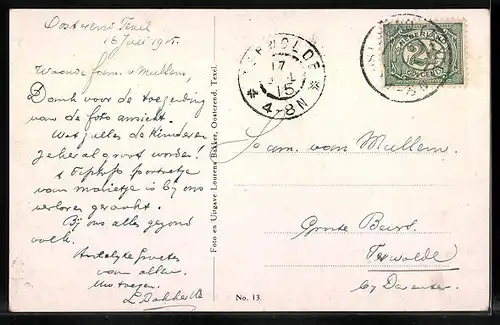 Oosterend Texel
16 Juli 1915.
Waarde fam. v Mullem,
Dank voor de toezending
van de foto ansicht.
Wat zulles de Kinderen
geheel groot worden!
't portretje
van malietje is bij ons
verloren geraakt.
Bij ons alles gezond
volk.
Hartelijke Groeten
van allen
L Bakker
Foto en Uitgave Lourens Bakker, Oosterend, Texel.
No. 13.
TERWOLDE
17
15
4-8N
NEDERLAND
2½
CENT
Fam. van Mullem.
Groote Buist.
Terwolde
bij Deventer